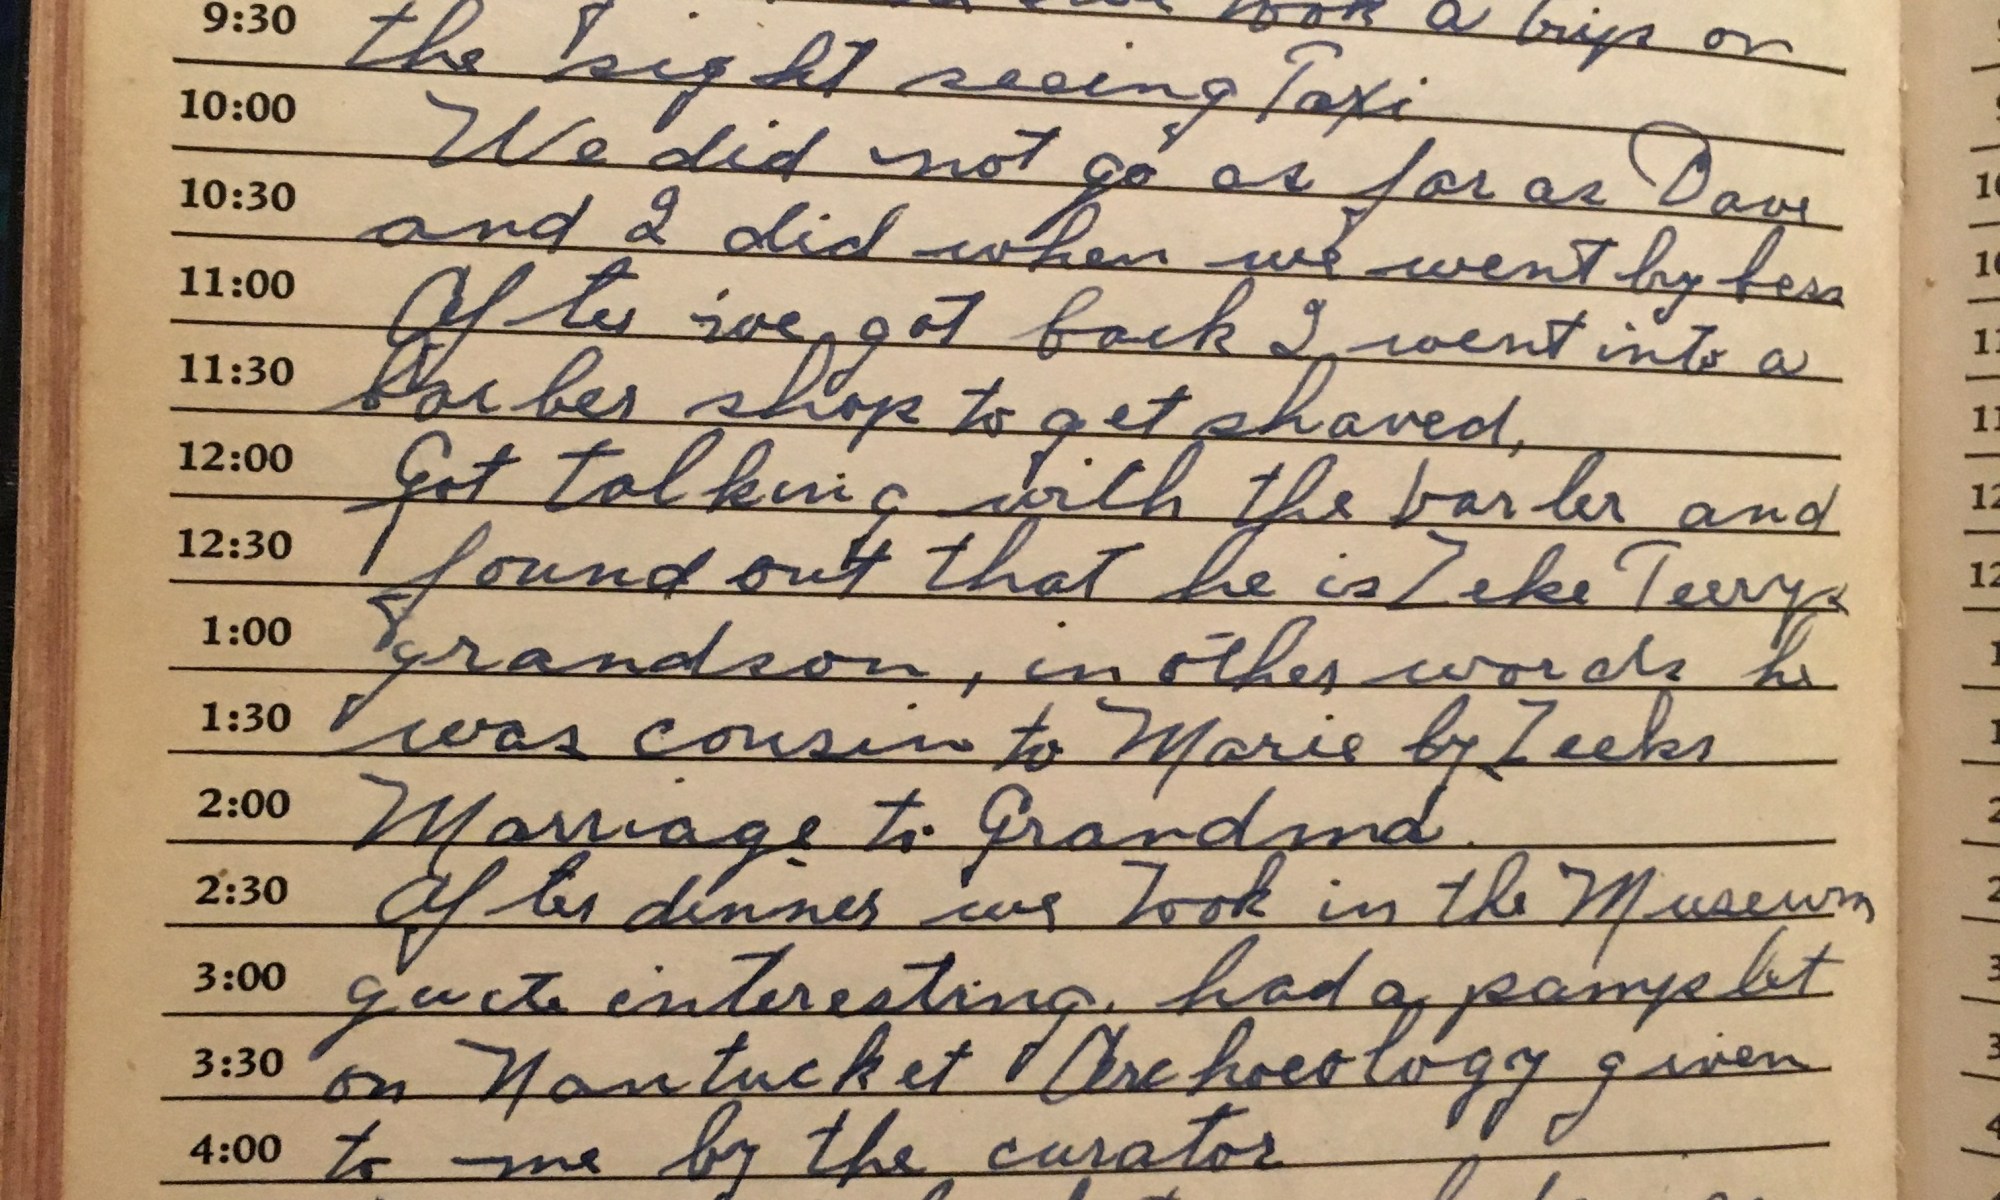 9:30 took a trip on
the sight seeing Taxi
10:00 We did not go as far as Dave
10:30 and I did when we went by
11:00 After we got back I went into a
11:30 barber shop to get shaved,
12:00 Got talking with the barber and
12:30 found out that he is Zeke Teerys
1:00 grandson, in other words he
1:30 was cousin to Marie by Zeeks
2:00 Marriage to Grandma.
2:30 After dinner we took in the Museum
3:00 quite interesting. had a pamplet
3:30 on Nantucket Archoeology given
4:00 to me by the curator